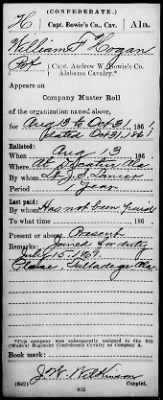 (CONFEDERATE.)
H Capt. Bowie's Co., Cav. Ala.
William F Hogan
Pvt, Capt. Andrew W. Bowie's Co.
Alabama Cavalry.*
Appears on
Company Muster Roll
of the organization named above,
for Aug 13 to Oct 31, 1861.
Enlisted:
When Aug 13, 186
Where
By whom
Period year
Last paid:
By whom Has not been paid
To what time 186
Present or absent Present
Remarks: Joined for duty
Talladega Ala.
*This company was subsequently assigned to the 8th
Regiment Confederate Cavalry as Company A.
Book mark:
(642) Copyist.